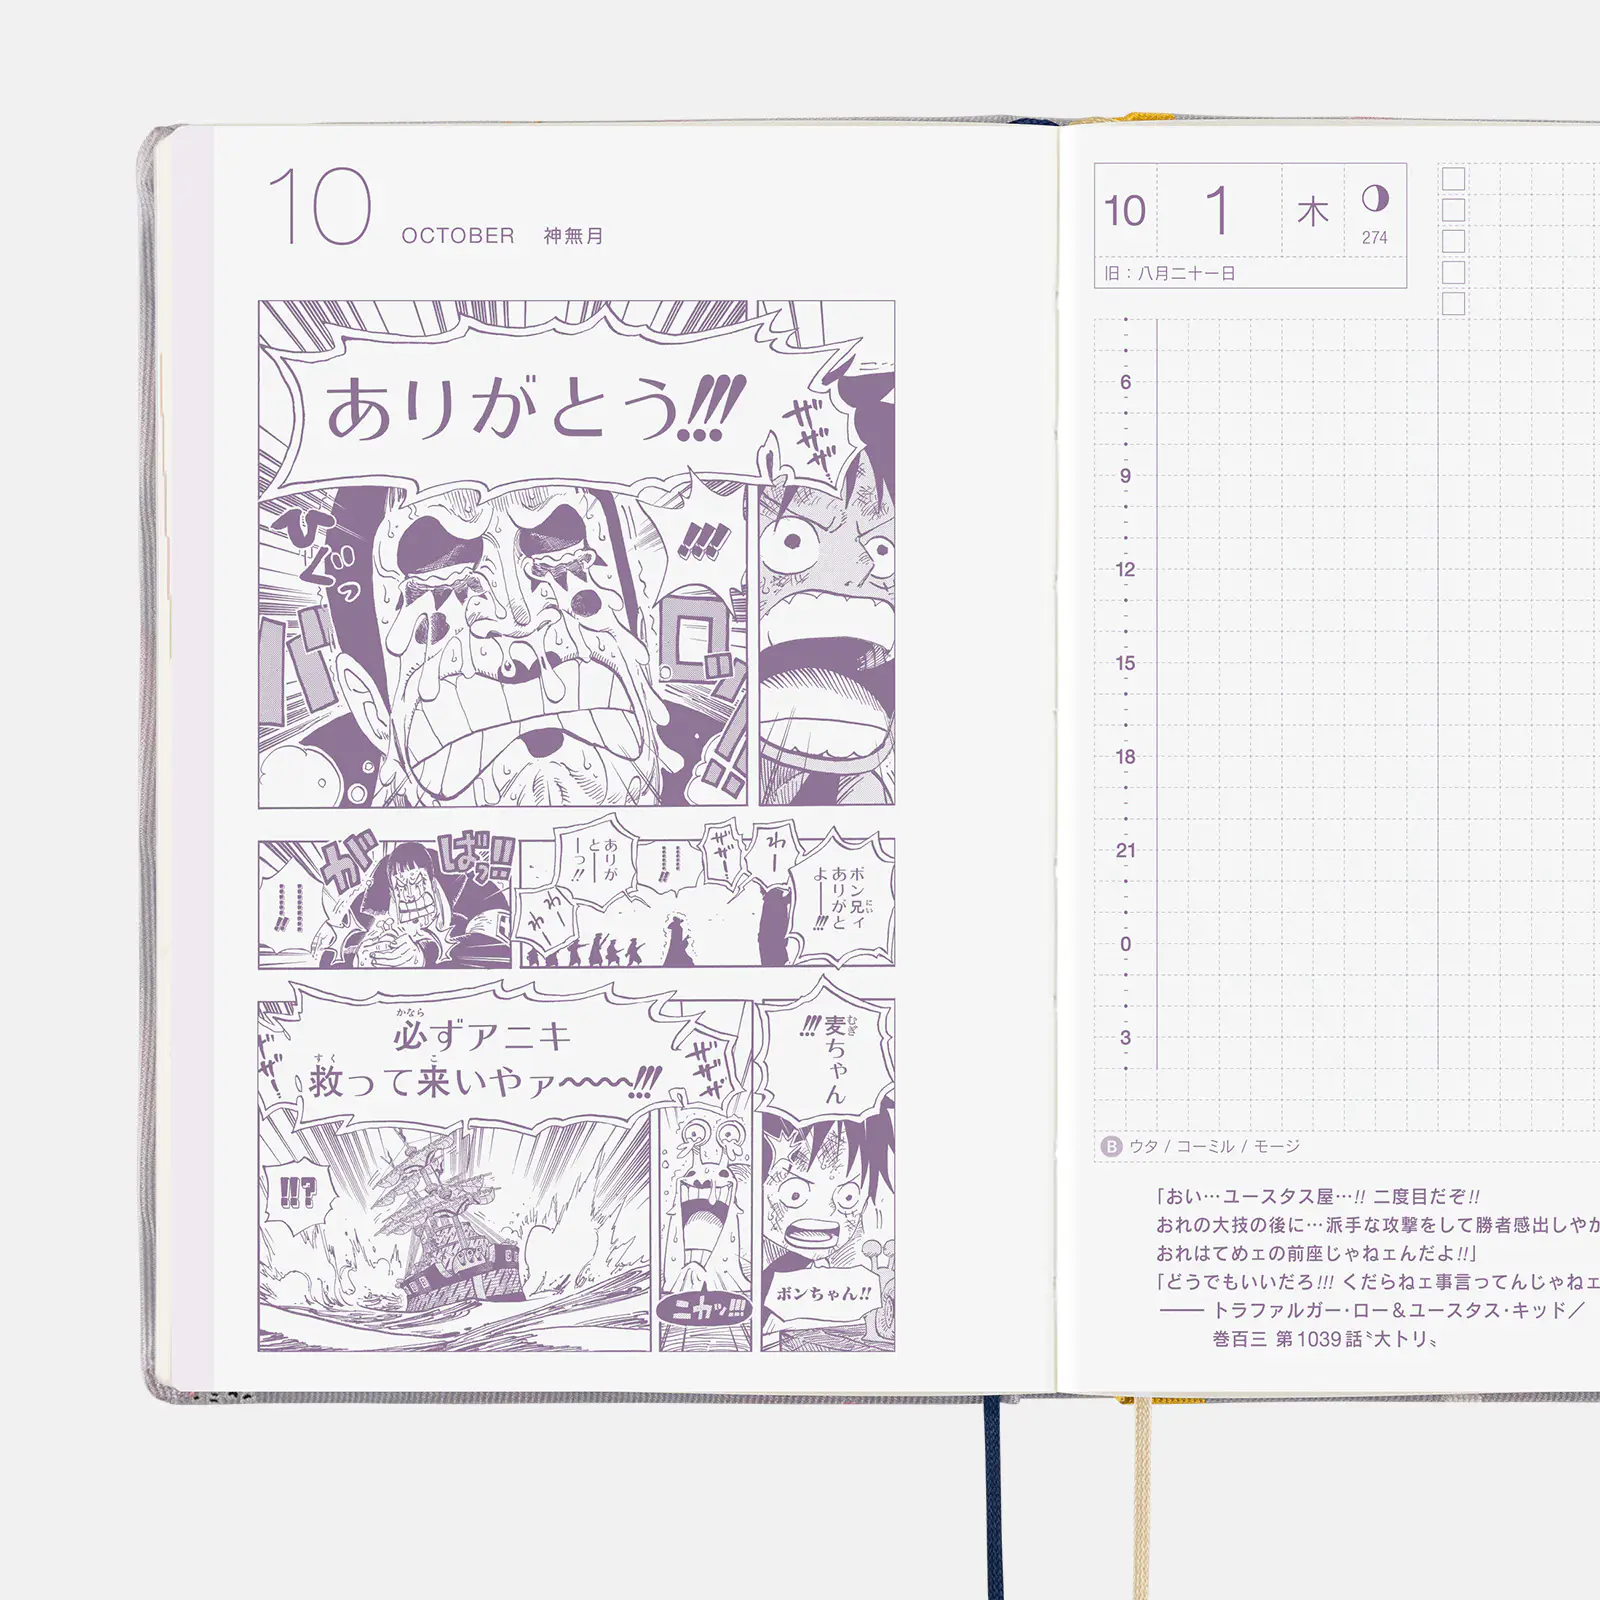 10 OCTOBER 神無月
ありがとう!!!
ザザザ
ひぐっ
!!!
バロッ!!
がばっ!!
ありがとーーっ!!
ザザー
わー
わーわー
ボン兄ィ
ありがと
よーー!!!
にい
かなら
必ずアニキ
すく こ
救って来いやァ〜〜〜!!!
ザザー
ザザザ
麦ちゃん
むぎ
!!!
!!?
ニカッ!!!
ボンちゃん!!
10 1 木
274
旧：八月二十一日
6
9
12
15
18
21
0
3
B ウタ / コーミル / モージ
「おい…ユースタス屋…!! 二度目だぞ!!
おれの大技の後に…派手な攻撃をして勝者感出しやが
おれはてめェの前座じゃねェんだよ!!」
「どうでもいいだろ!!! くだらねェ事言ってんじゃねェ
―― トラファルガー・ロー＆ユースタス・キッド／
巻百三 第1039話〝大トリ〟